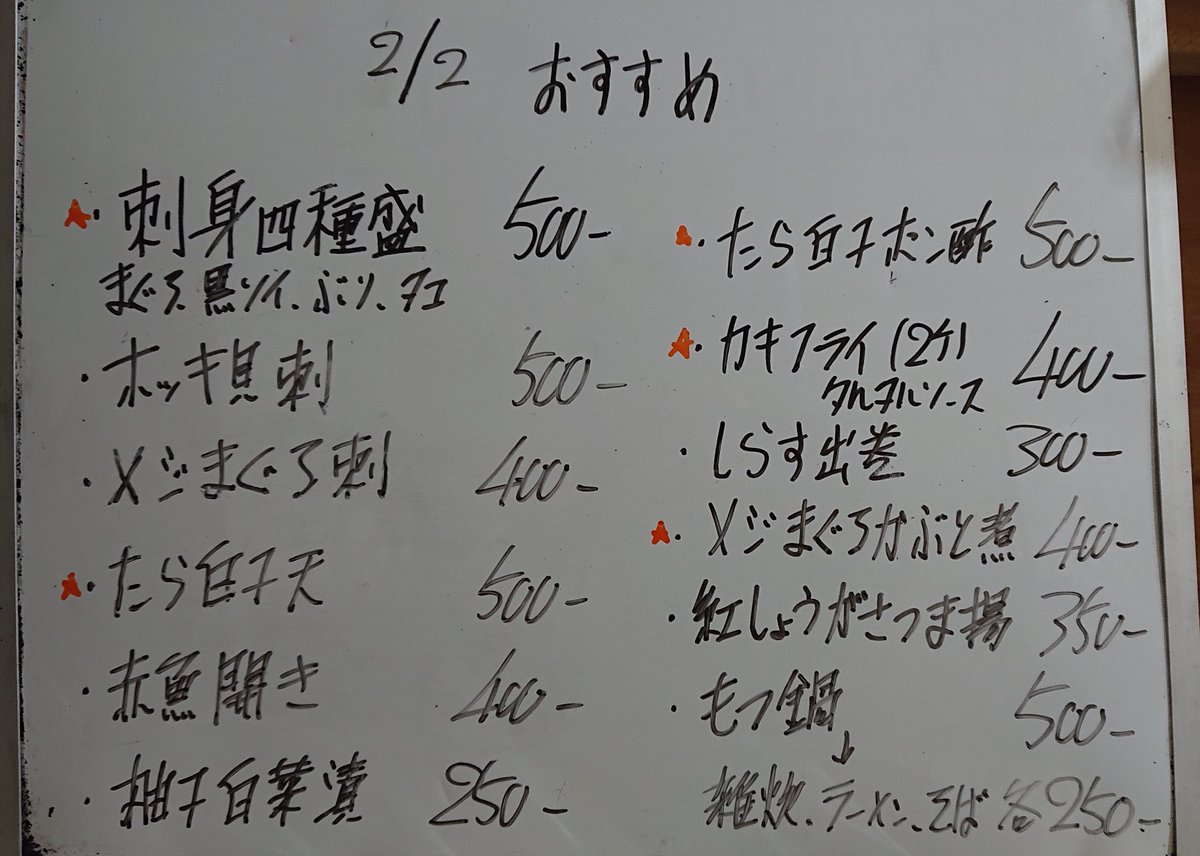 2/2 おすすめ
・刺身四種盛 500-
まぐろ、黒ソイ、ぶり、タコ
・ホッキ貝刺 500-
・メジまぐろ刺 400-
・たら白子天 500-
・赤魚開き 400-
・柚子白菜漬 250-
・たら白子ポン酢 500-
・カキフライ(2ケ) 400-
タルタルソース
・しらす出巻 300-
・メジまぐろかぶと煮 400-
・紅しょうがさつま揚 350-
・もつ鍋 500-
↓
雑炊、ラーメン、そば 各250-